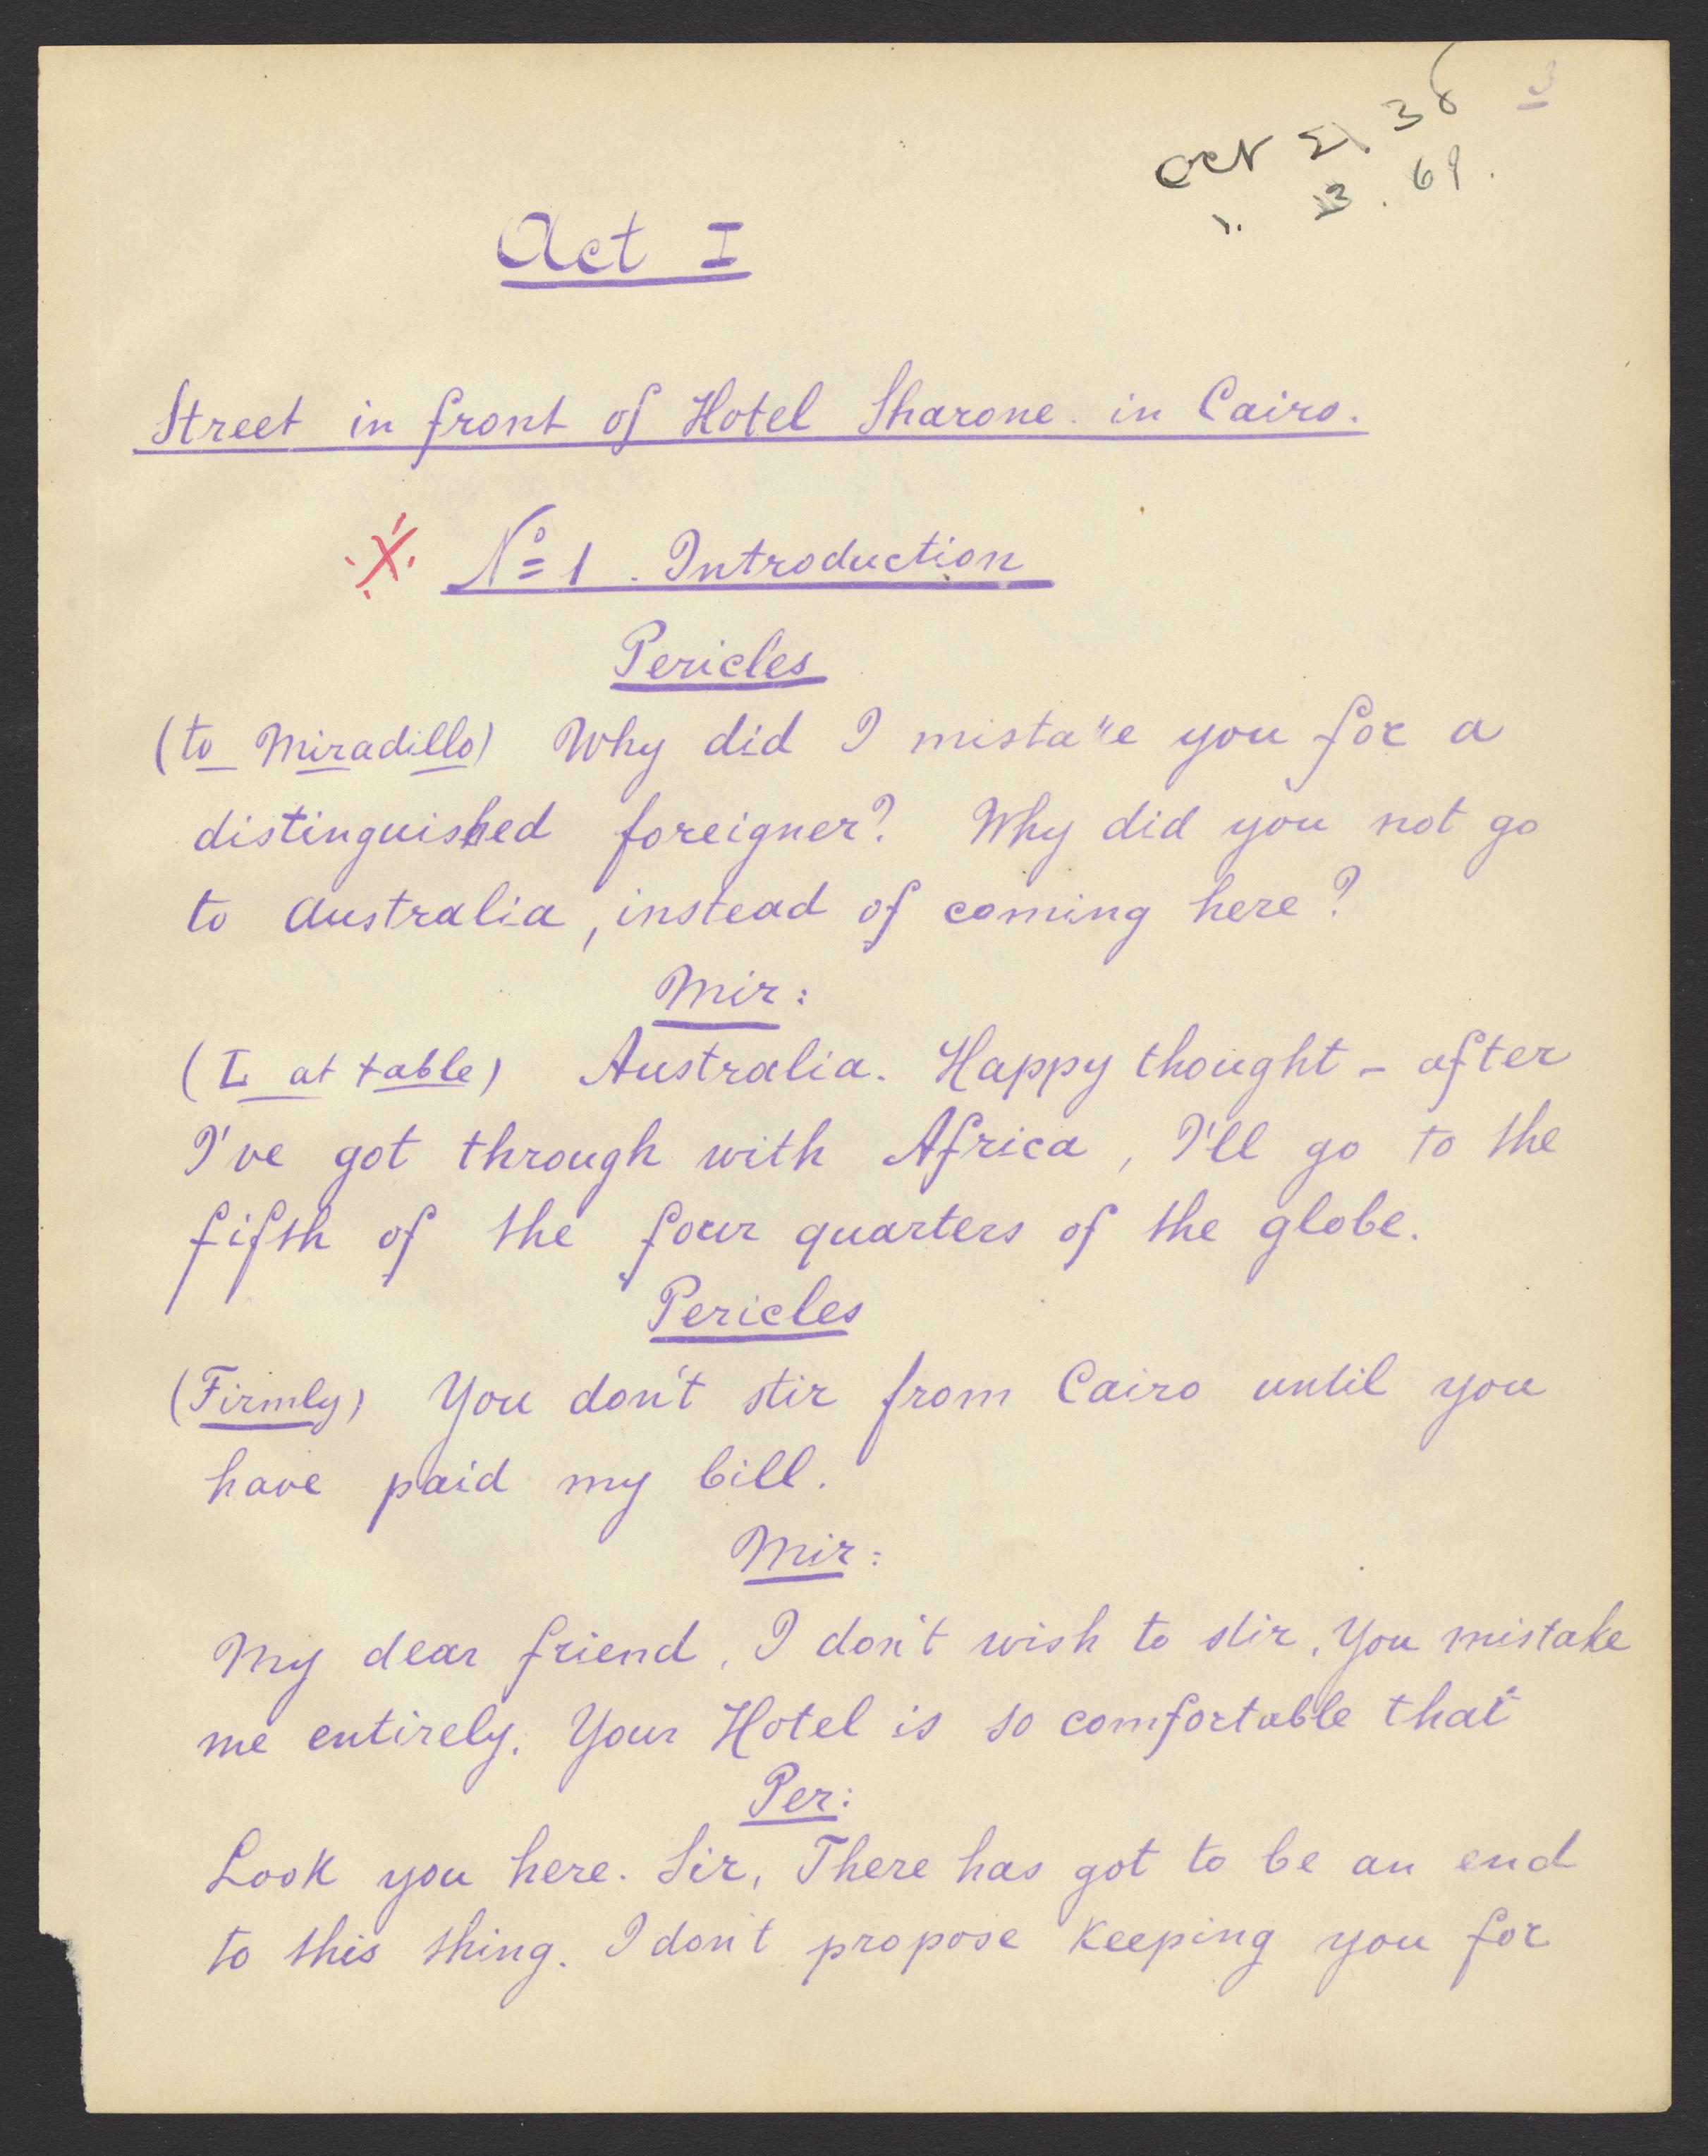 3
Oct 21. 36
1. 13. 69.
Act I
Street in front of Hotel Sharone in Cairo.
No 1. Introduction
Pericles
(to Miradillo) Why did I mistake you for a
distinguished foreigner? Why did you not go
to Australia, instead of coming here?
Mir:
(L at table) Australia. Happy thought - after
I've got through with Africa, I'll go to the
fifth of the four quarters of the globe.
Pericles
(Firmly) You don't stir from Cairo until you
have paid my bill.
Mir:
My dear friend, I don't wish to stir. You mistake
me entirely. Your Hotel is so comfortable that
Per:
Look you here. Sir, There has got to be an end
to this thing. I don't propose keeping you for